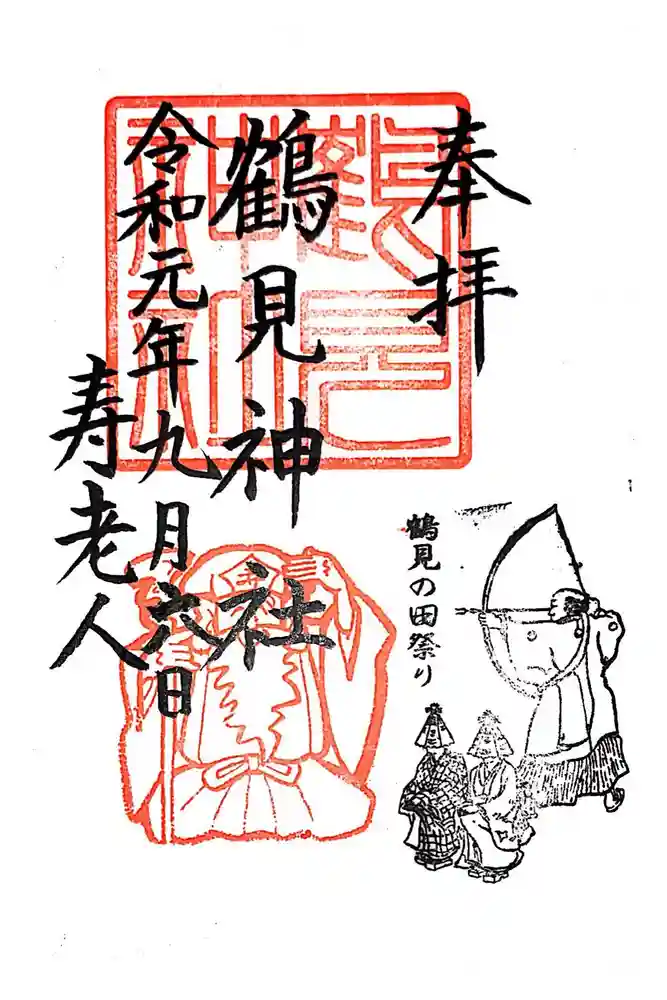 奉拝
鶴見神社
令和元年九月六日
寿老人
鶴見の田祭り
鶴見神社